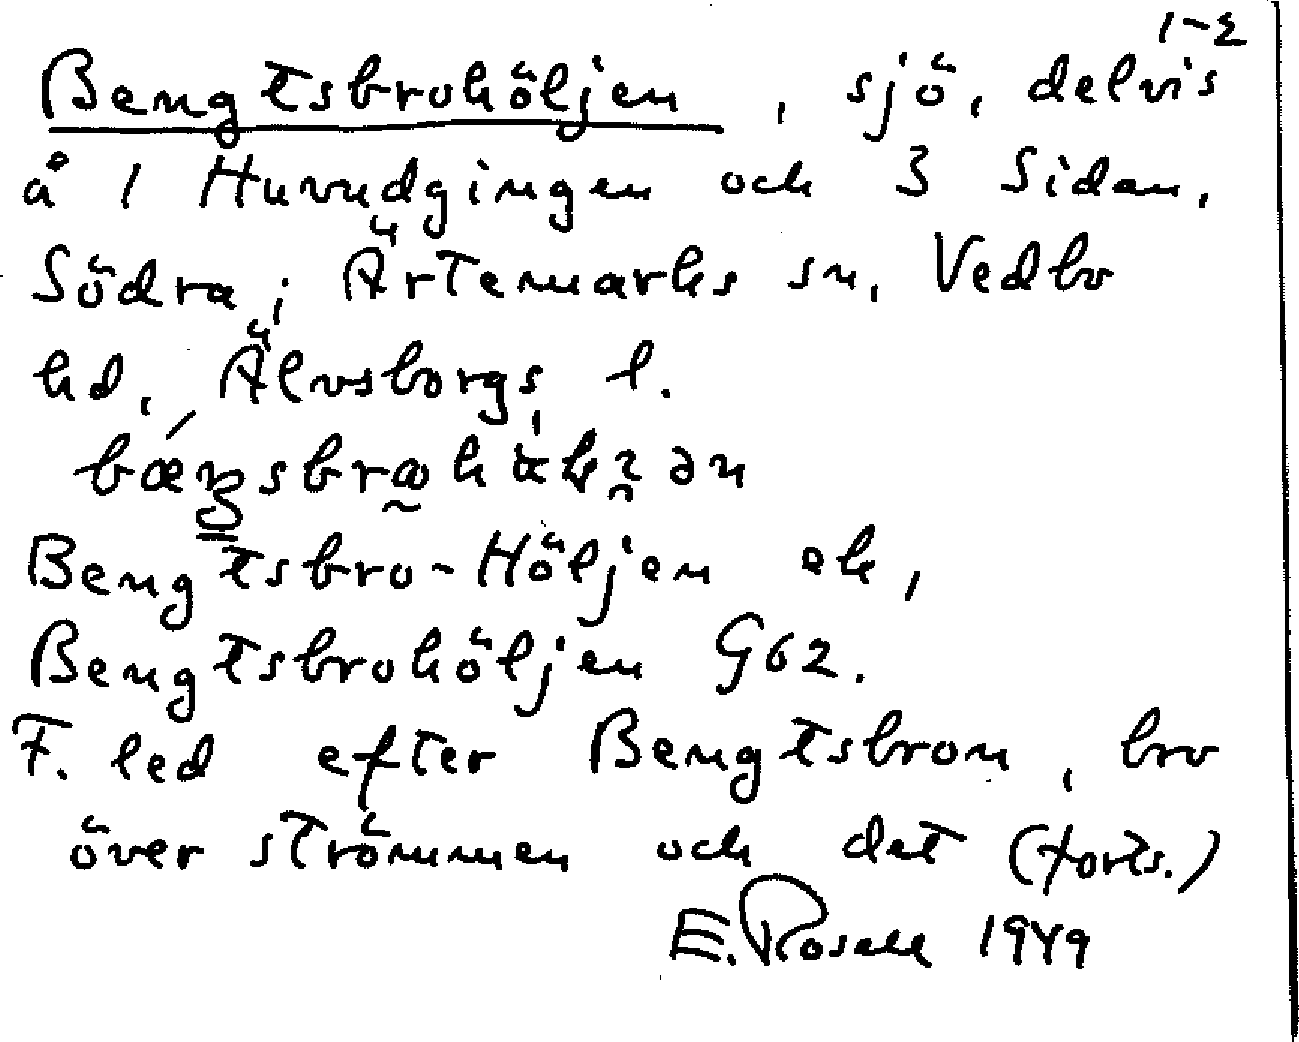 1-2
Bengtsbrohöljen, sjö, delvis
å 1 Huvudgingen och 3 Sidan,
Södra; Ärtemarks sn, Vedbo
hd, Älvsborgs l.
Bengtsbro-Höljen ek,
Bengtsbrohöljen G62.
F. led efter Bengtsbron, bro
över strömmen och det (forts.)
E. Rosell 1949